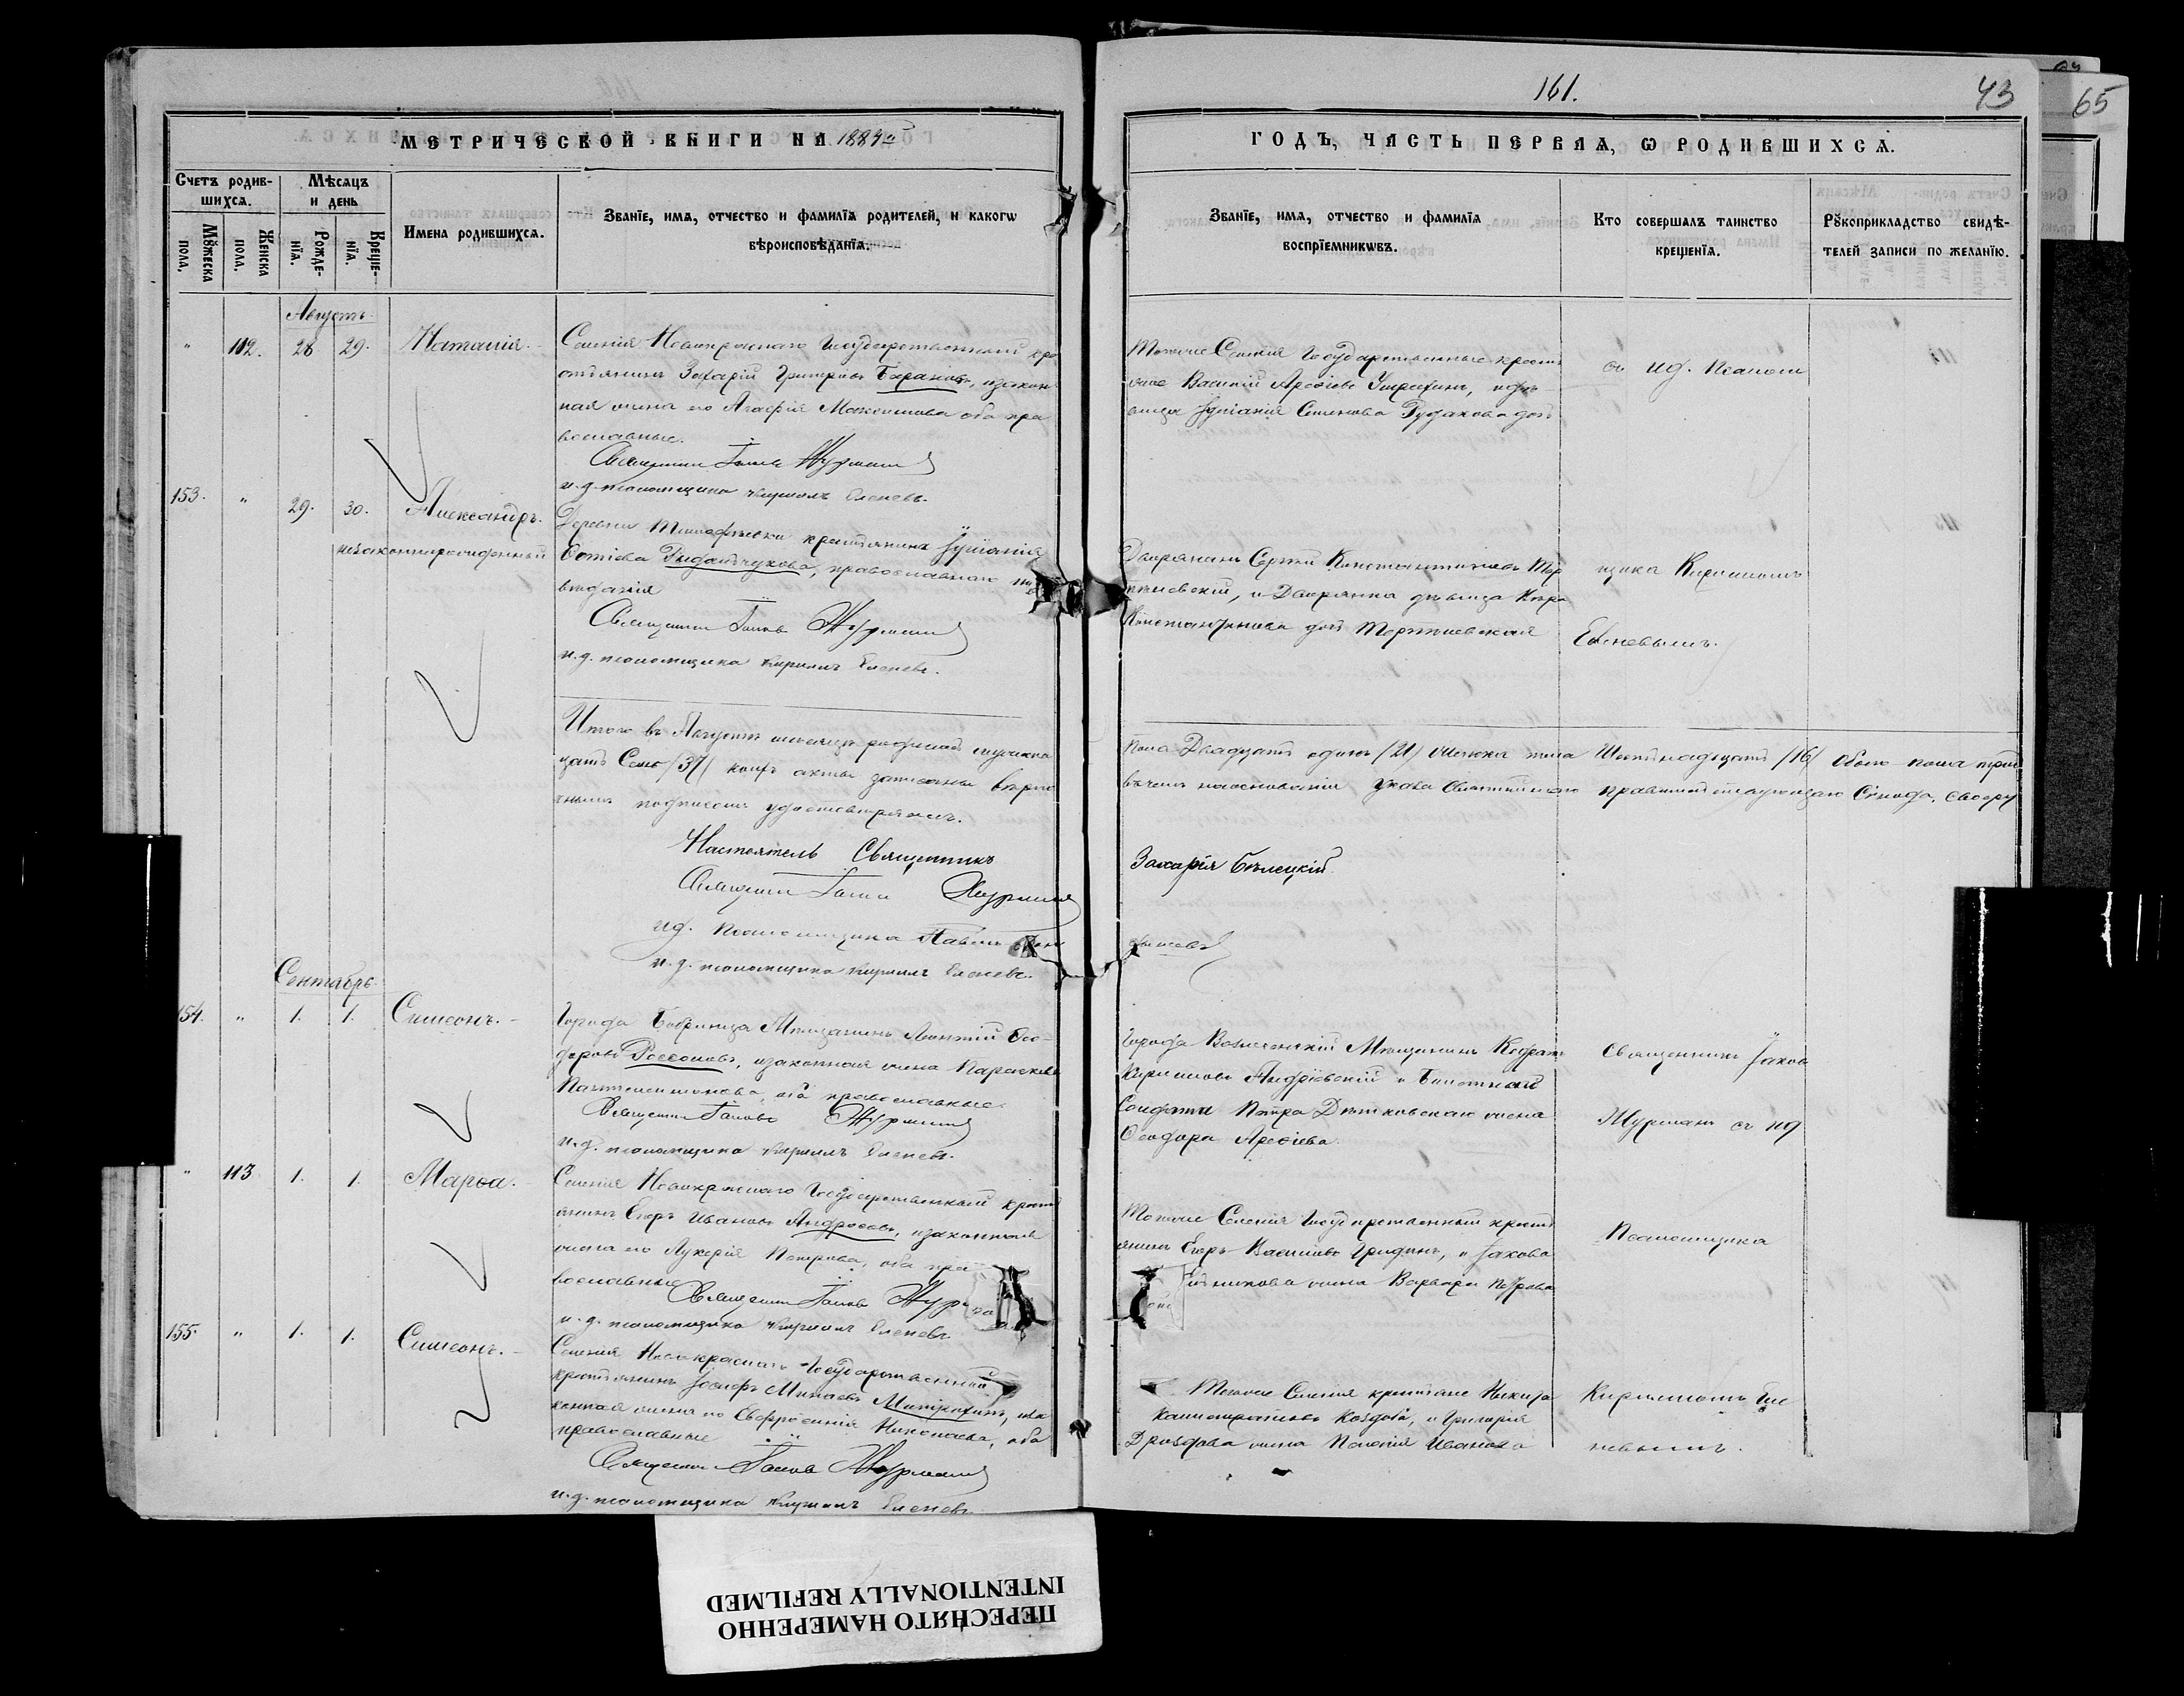 161.
43
65
МЕТРИЧЕСКОЙ КНИГИ НА 1889й
ГОДЪ, ЧАСТЬ ПЕРВАЯ, Ѡ РОДИВШИХСѦ.
Счетъ родив-
шихсѧ.
Мѣсѧцъ
и день
Мꙋжеска
пола.
Женска
пола.
Рожде-
нїѧ.
Креще-
нїѧ.
Имена родившихсѧ.
Званїе, имѧ, отчество и фамилїѧ родителей, и какогѡ
вѣроисповѣданїѧ.
Званїе, имѧ, отчество и фамилїѧ
воспрїемникѡвъ.
Кто совершалъ таинство
крещенїѧ.
Рꙋкоприкладство свидѣ-
телей записи по желанїю.
Августъ
" 112. 28 29. Наталія.
Селенія Новокраснаго Государственный кре
стьянинъ Захарій Григорьевъ Барановъ, изакон
ная жена его Агафія Максимова оба пра
вославные.
Священникъ Іаковъ Мурманъ
и.д. псаломщика Кириллъ Еленевъ.
Тогоже Селенія Государственные кресть
яне Василій Арефіевъ
вица Іуліанія Семенова дочь
съ ид. Псалом
153. " 29. 30. Александръ.
незаконнорожденный
Деревни крестьянка Іуліанія
Фотіева православнаго
веданія
Священникъ Іаковъ Мурманъ
и.д. псаломщика Кириллъ Еленевъ.
Дворянинъ Сергій Константиновъ
и Дворянка девица
Константинова дочь
щика Кирилломъ
Еленевымъ.
Итого въ Августе месяце родилось мужска
пола Двадцать одинъ (21) Женска пола Шестнадцать (16) Обоего пола трид
цать Семь (37) коихъ акты записаны верно
въ чемъ наоснованіи Указа Святейшаго правительствующаго Сѵнода, своеру
чнымъ подписомъ удостоверяемъ.
Настоятель Священникъ
Захарія Белецкій
Священникъ Іаковъ Мурманъ
ид. Псаломщика Павелъ
и.д. псаломщика Кириллъ Еленевъ.
Сентябрь
154. " 1. 1. Симеонъ.
Города Бобринца Мещанинъ Леонтій Ѳео-
доровъ изаконная жена Параскева
Пантелеимонова, оба православные.
Священникъ Іаковъ Мурманъ
и.д. псаломщика Кириллъ Еленевъ.
Города Вознесенскій Мещанинъ Кодратъ
Кирилловъ Андріевскій и Билетнаго
Солдата Петра жена
Ѳеодора Арефіева.
Священникъ Іаковъ
Мурманъ съ ид
" 113 1. 1. Марѳа.
Селенія Новокраснаго Государственный кресть
янинъ Егоръ Ивановъ Андросовъ, изаконная
жена его Лукерія Петрова, оба пра
вославные
Священникъ Іаковъ
и.д. псаломщика Кириллъ Еленевъ
Тогоже Селенія Государственный кресть
янинъ Егоръ Васильевъ Гридинъ, и Іакова
жена Варвара Петрова
Псаломщика
155. " 1. 1. Симеонъ.
Селенія Новокраснаго Государственный
крестьянинъ Іосифъ Минаевъ Митрохинъ, иза
конная жена его Евфросинія Николаева, оба
православные
Священникъ Іаковъ Мурманъ
и.д. псаломщика Кириллъ Еленевъ
Тогоже Селенія крестьяне Никита
Калистратовъ и Григорія
Дроздова жена Пелагія Иванова
Кирилломъ Еле
невымъ.
ПЕРЕСНЯТО НАМЕРЕННО
INTENTIONALLY REFILMED